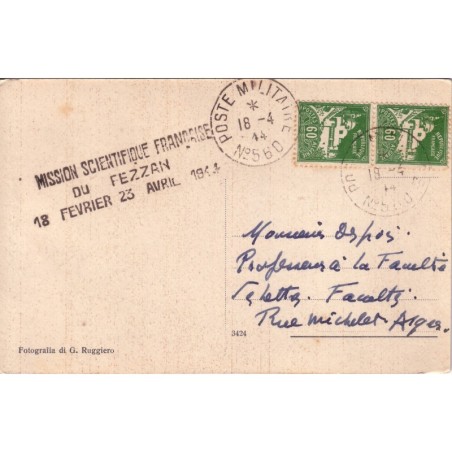 MISSION SCIENTIFIQUE FRANÇAISE
DU FEZZAN
18 FEVRIER 23 AVRIL 1944
POSTE MILITAIRE
*
18 -4
44
N°560
60
60
18 -4
44
N°560
Monsieur Despois
Professeur à la Faculté
Faculté
Rue Michelet Alger
3424
Fotografia di G. Ruggiero